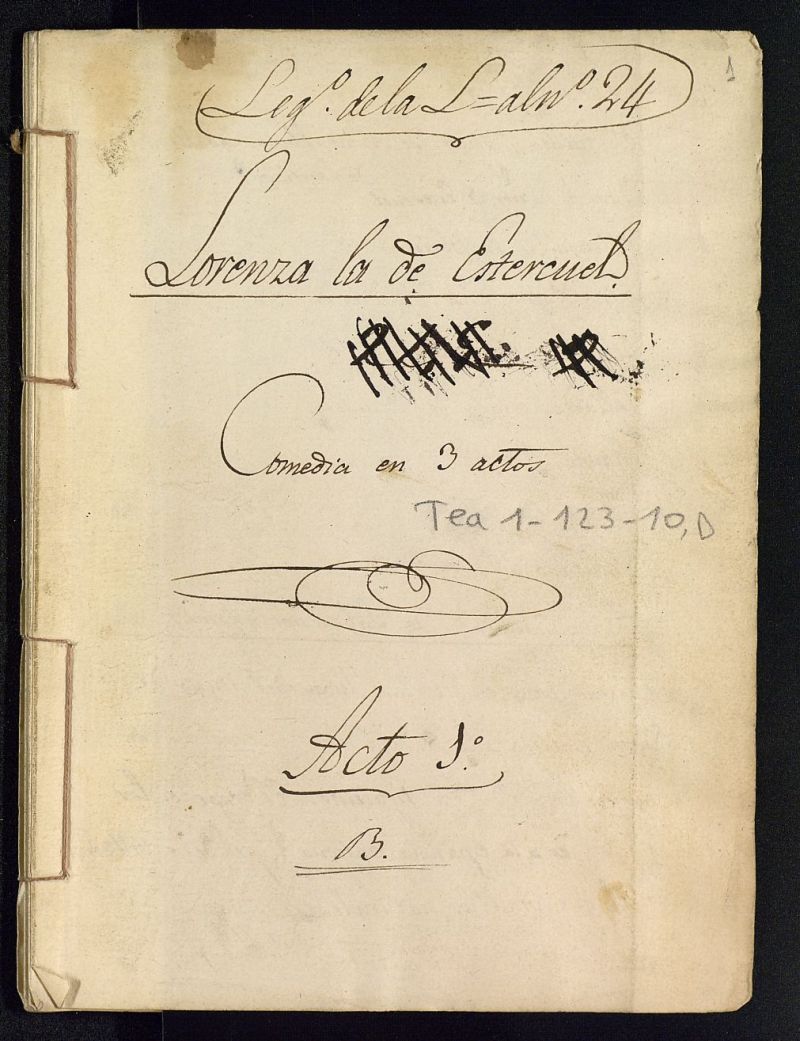 1
Legº. de la L= al nº. 24
Lorenza la de Estercuel.
Comedia en 3 actos
Tea 1-123-10, D
Acto 1º
B.